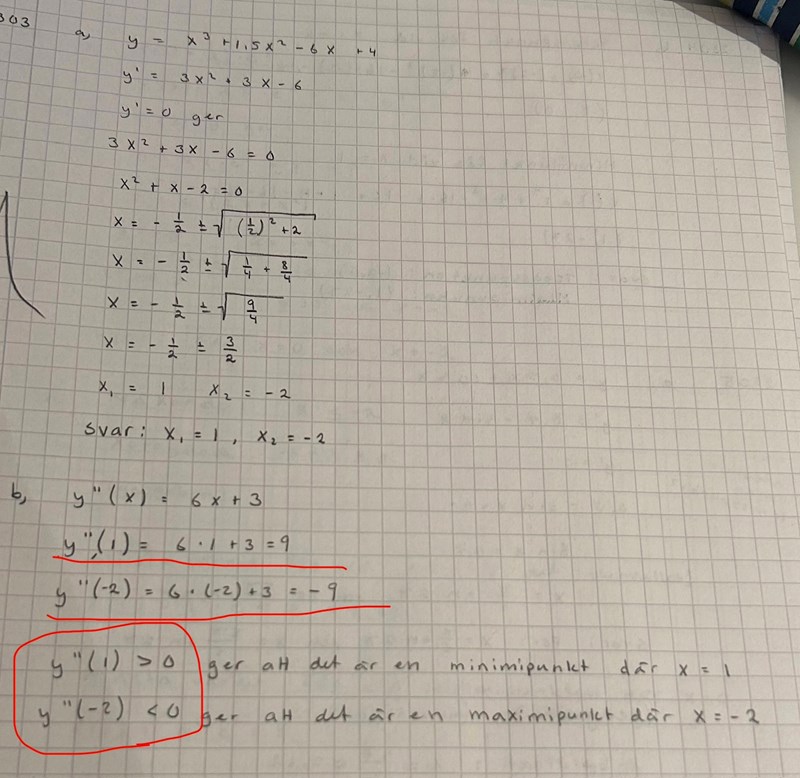 303 a, y = x³ + 1,5x² - 6x + 4
y' = 3x² + 3x - 6
y' = 0 ger
3x² + 3x - 6 = 0
x² + x - 2 = 0
x = - 1/2 ± √((1/2)² + 2)
x = - 1/2 ± √(1/4 + 8/4)
x = - 1/2 ± √(9/4)
x = - 1/2 ± 3/2
x₁ = 1 x₂ = -2
svar: x₁ = 1, x₂ = -2
b, y''(x) = 6x + 3
y''(1) = 6 · 1 + 3 = 9
y''(-2) = 6 · (-2) + 3 = -9
y''(1) > 0 ger att det är en minimipunkt där x = 1
y''(-2) < 0 ger att det är en maximipunkt där x = -2